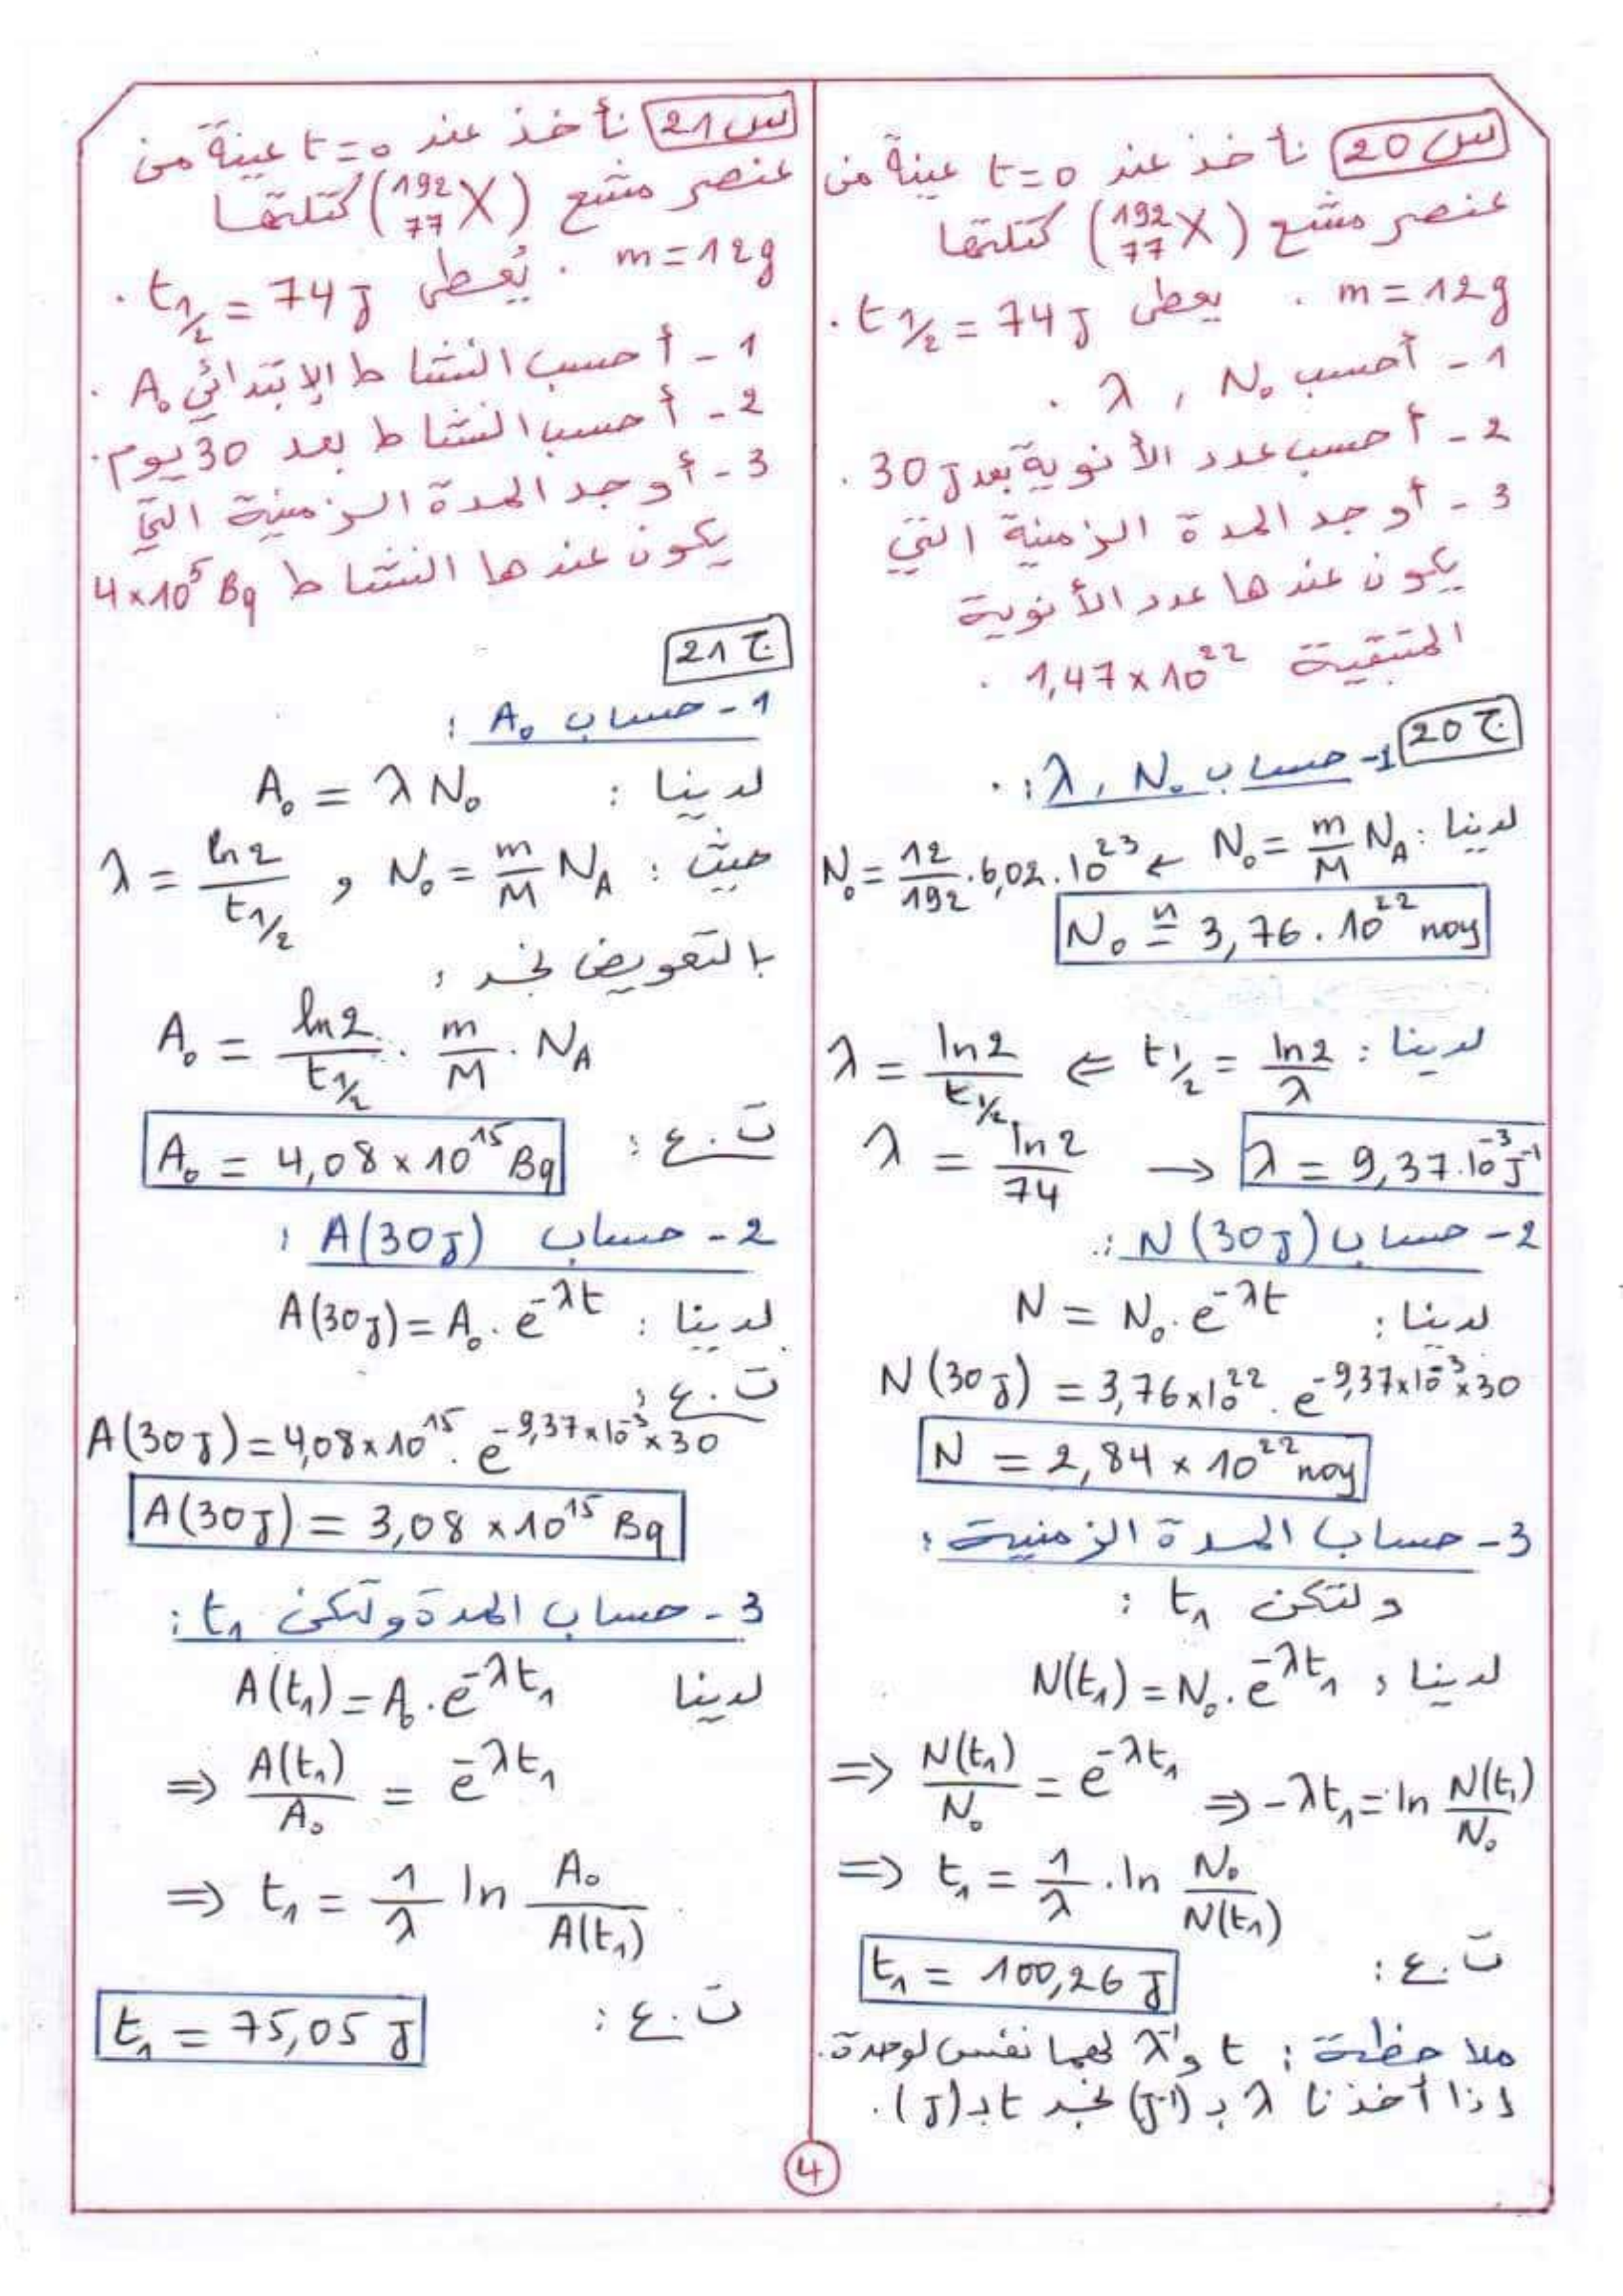 س20 نأخذ عند t=0 عينة من
عنصر مشع (¹⁹²₇₇X) كتلتها
m=12g . يعطى t1/2 = 74 J .
1 - أحسب N₀ , λ .
2 - أحسب عدد الأنوية بعد 30 J .
3 - أوجد المدة الزمنية التي
يكون عندها عدد الأنوية
المتبقية 1,47×10²² .
ج20
1- حساب N₀ , λ : .
لدينا : N₀ = m/M N_A ← N₀ = 12/192 . 6,02 . 10²³
N₀ ≅ 3,76 . 10²² noy
لدينا : t1/2 = ln2/λ ⇐ λ = ln2/t1/2
λ = ln2/74 → λ = 9,37.10⁻³ J⁻¹
2 - حساب N(30J) :
لدينا : N = N₀.e^-λt
N(30J) = 3,76×10²² . e^-9,37×10⁻³×30
N = 2,84 × 10²² noy
3 - حساب المدة الزمنية :
ولتكن t₁ :
لدينا : N(t₁) = N₀.e^-λt₁
⇒ N(t₁)/N₀ = e^-λt₁ ⇒ -λt₁ = ln N(t₁)/N₀
⇒ t₁ = 1/λ . ln N₀/N(t₁)
ت.ع : t₁ = 100,26 J
ملاحظة : t و λ⁻¹ لهما نفس لوحدة.
إذا أخذنا λ بـ (J⁻¹) نجد t بـ (J).
س21 نأخذ عند t=0 عينة من
عنصر مشع (¹⁹²₇₇X) كتلتها
m=12g . يُعطى t1/2 = 74 J .
1 - أحسب النشاط الإبتدائي A₀ .
2 - أحسب النشاط بعد 30 يوم.
3 - أوجد المدة الزمنية التي
يكون عندها النشاط 4×10⁵ Bq
ج21
1 - حساب A₀ :
لدينا : A₀ = λ N₀
حيث : N₀ = m/M N_A , λ = ln2/t1/2
بالتعويض نجد :
A₀ = ln2/t1/2 . m/M . N_A
ت.ع : A₀ = 4,08×10¹⁵ Bq
2 - حساب A(30J) :
لدينا : A(30J) = A₀.e^-λt
ت.ع :
A(30J) = 4,08×10¹⁵ . e^-9,37×10⁻³×30
A(30J) = 3,08×10¹⁵ Bq
3 - حساب المدة ولتكن t₁ :
لدينا A(t₁) = A₀.e^-λt₁
⇒ A(t₁)/A₀ = e^-λt₁
⇒ t₁ = 1/λ ln A₀/A(t₁)
ت.ع : t₁ = 75,05 J
4